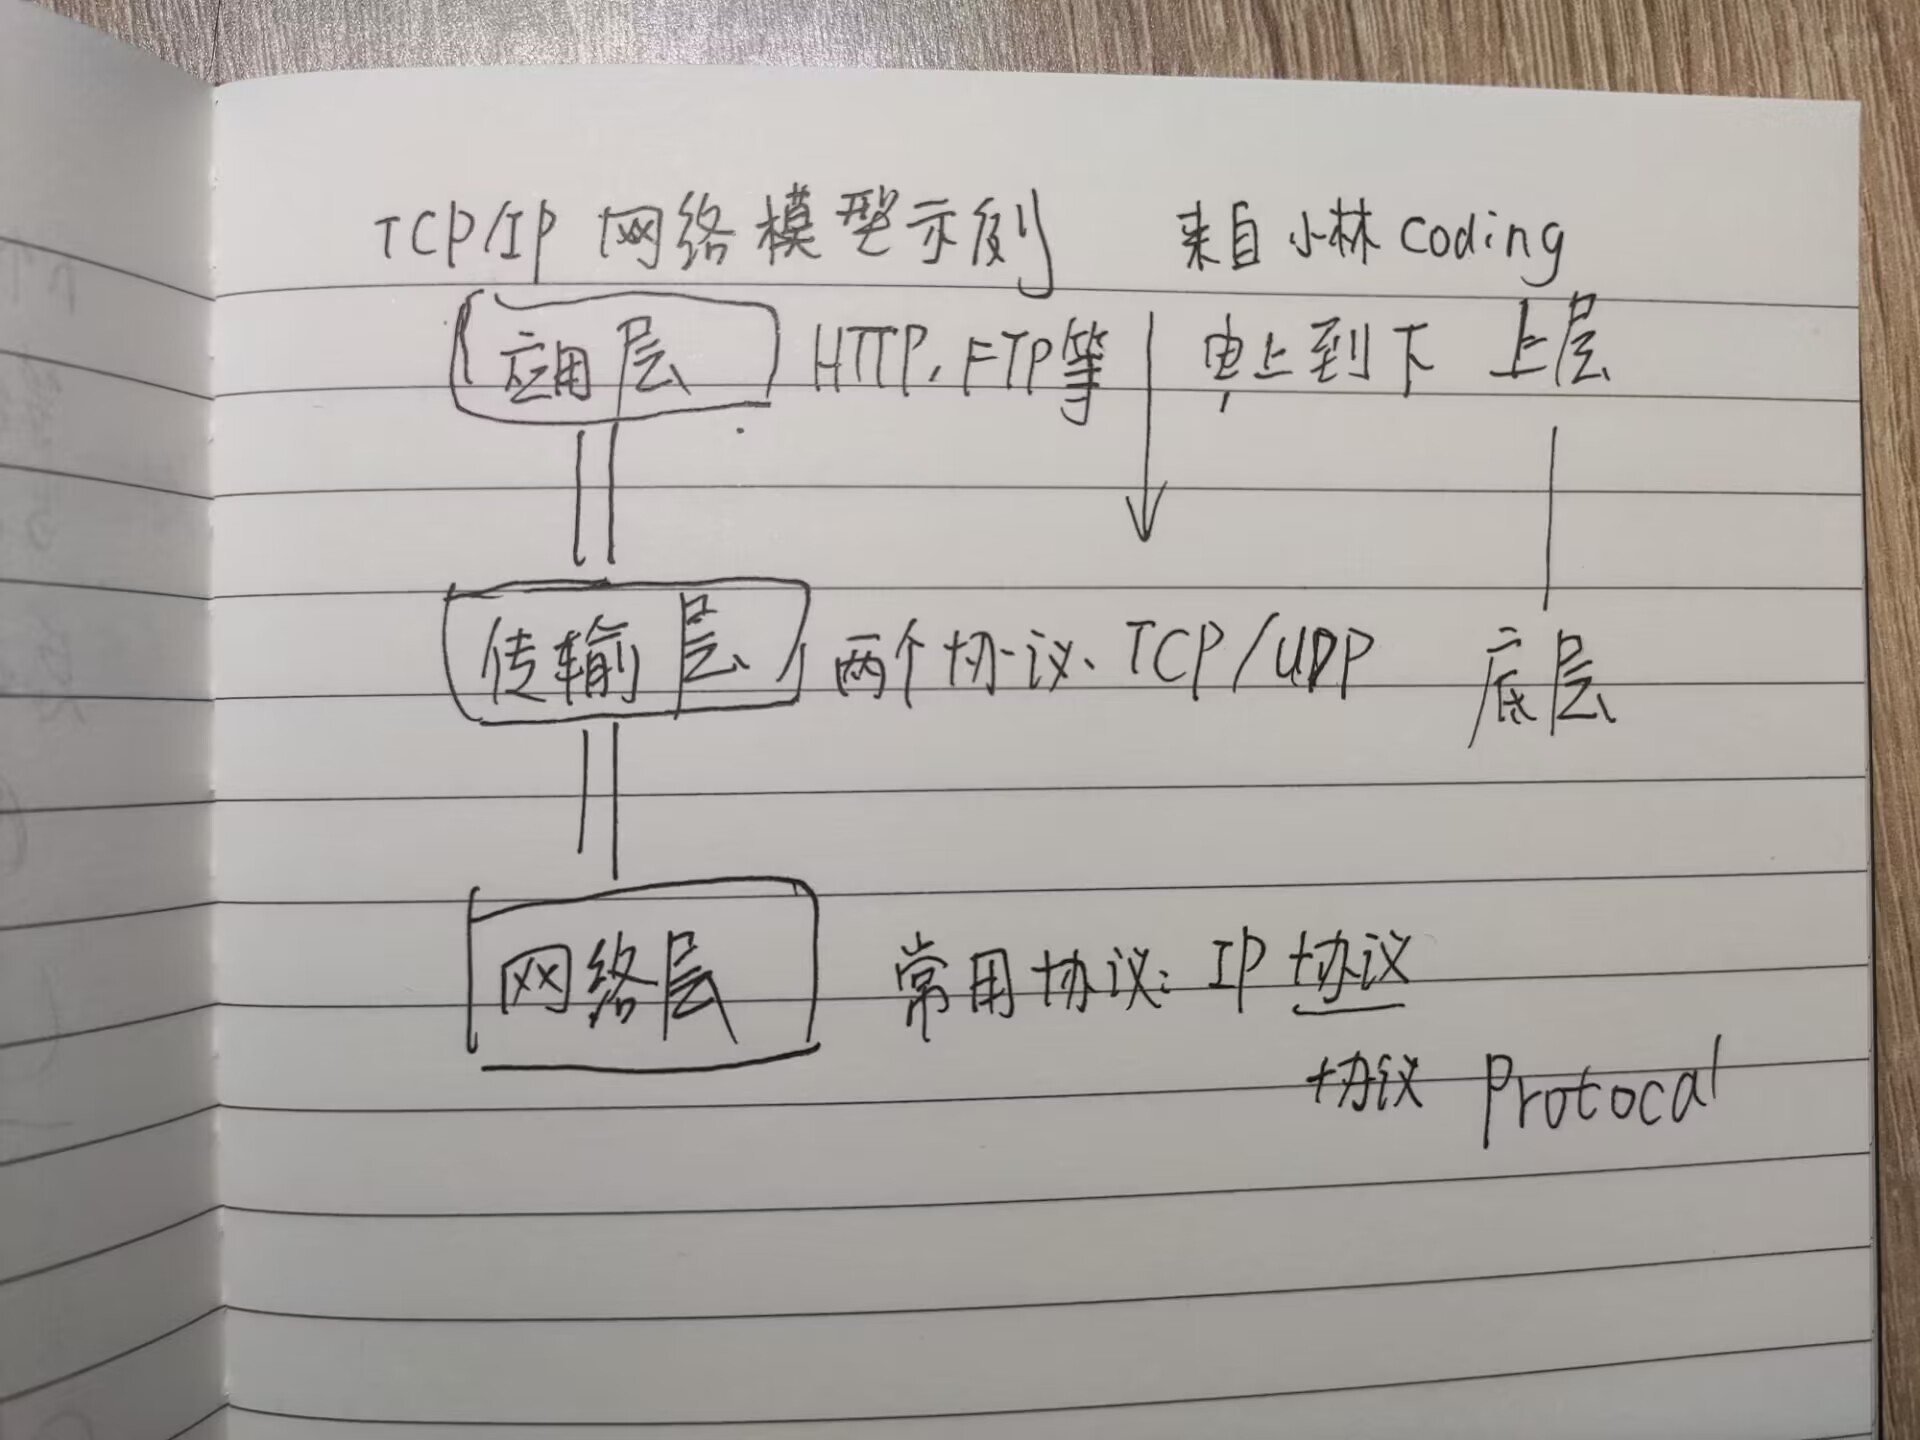 TCP/IP 网络模型示例 来自小林coding
应用层 HTTP, FTP等 由上到下 上层
传输层 两个协议、TCP/UDP 底层
网络层 常用协议: IP 协议
协议 Protocal